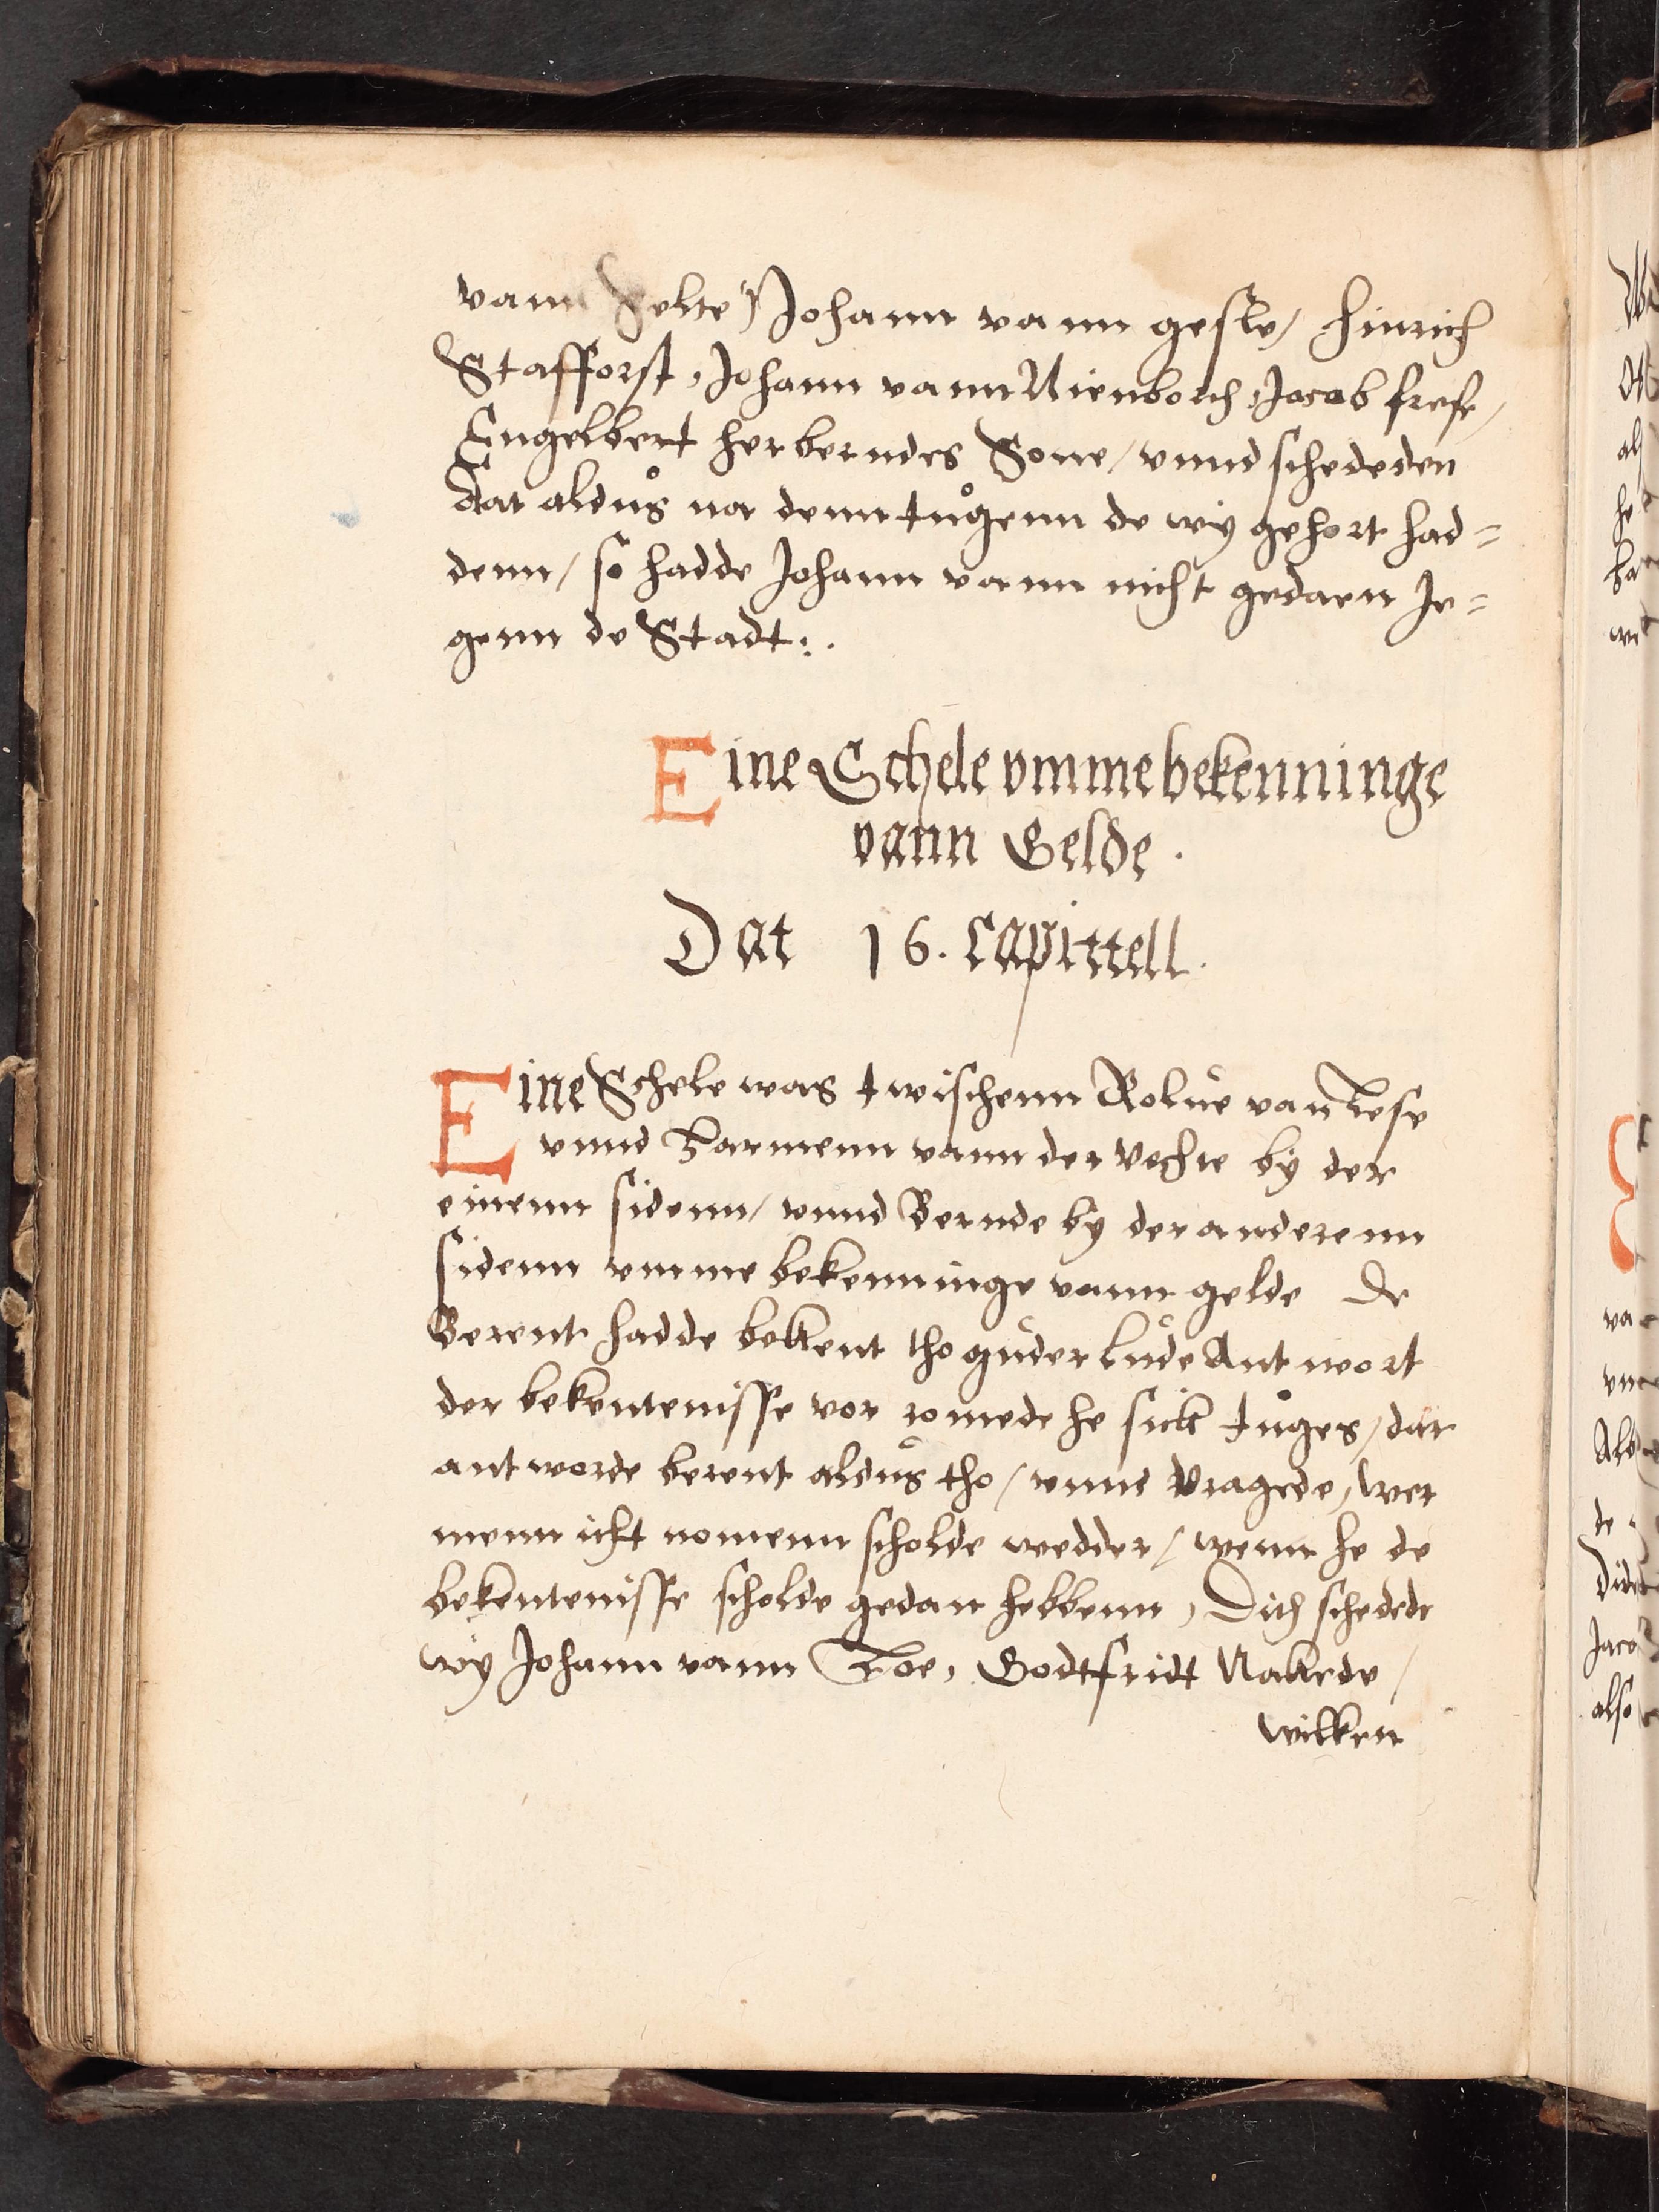 vann Helte Johann vann gesle / Hinrich
Stafforst, Johann vann Nienborch, Jacob frese /
Engelbert her berndes Sone / vnnd schededen
dat aldůs na denn tůgenn de wy gehort had=
denn / so hadde Johann vann nicht gedaen Je=
genn de Stadt:.
Eine Schele vmme bekenninge
vann Gelde.
Dat 16. Capittell.
Eine Schele was twischenn Rolue van Lese
vnnd Harmenn vann der vechte by der
einenn sidenn / vnnd Bernde by der anderenn
sidenn vmme bekenninge vann gelde De
Berent hadde bekent tho guder lude Antwort
der bekentenisse vor womede he sick tůges / dar
antworde berent aldůs tho / vnnd vragede, wer
menn icht nomenn scholde wedder / wenn he de
bekentenisse scholde gedan hebbenn, Dith schedede
wy Johann vann Loe, Godtfridt Nakede /
wilken